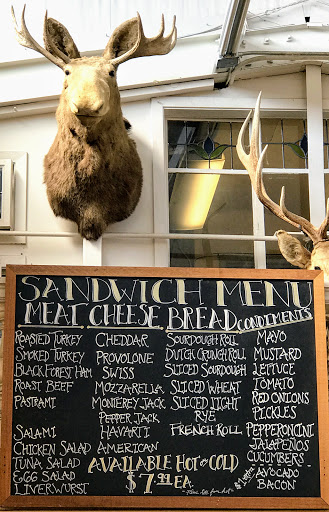 SANDWICH MENU
MEAT CHEESE BREAD CONDIMENTS
ROASTED TURKEY CHEDDAR SOURDOUGH ROLL MAYO
SMOKED TURKEY PROVOLONE DUTCH CRUNCH ROLL MUSTARD
BLACK FOREST HAM SWISS SLICED SOURDOUGH LETTUCE
ROAST BEEF MOZZARELLA SLICED WHEAT TOMATO
PASTRAMI MONTEREY JACK SLICED LIGHT RED ONIONS
PEPPER JACK RYE PICKLES
SALAMI HAVARTI FRENCH ROLL PEPPERONCINI
CHICKEN SALAD AMERICAN JALAPENOS
TUNA SALAD AVAILABLE HOT or COLD CUCUMBERS
EGG SALAD $7.99 EA. AVOCADO
LIVERWURST BACON